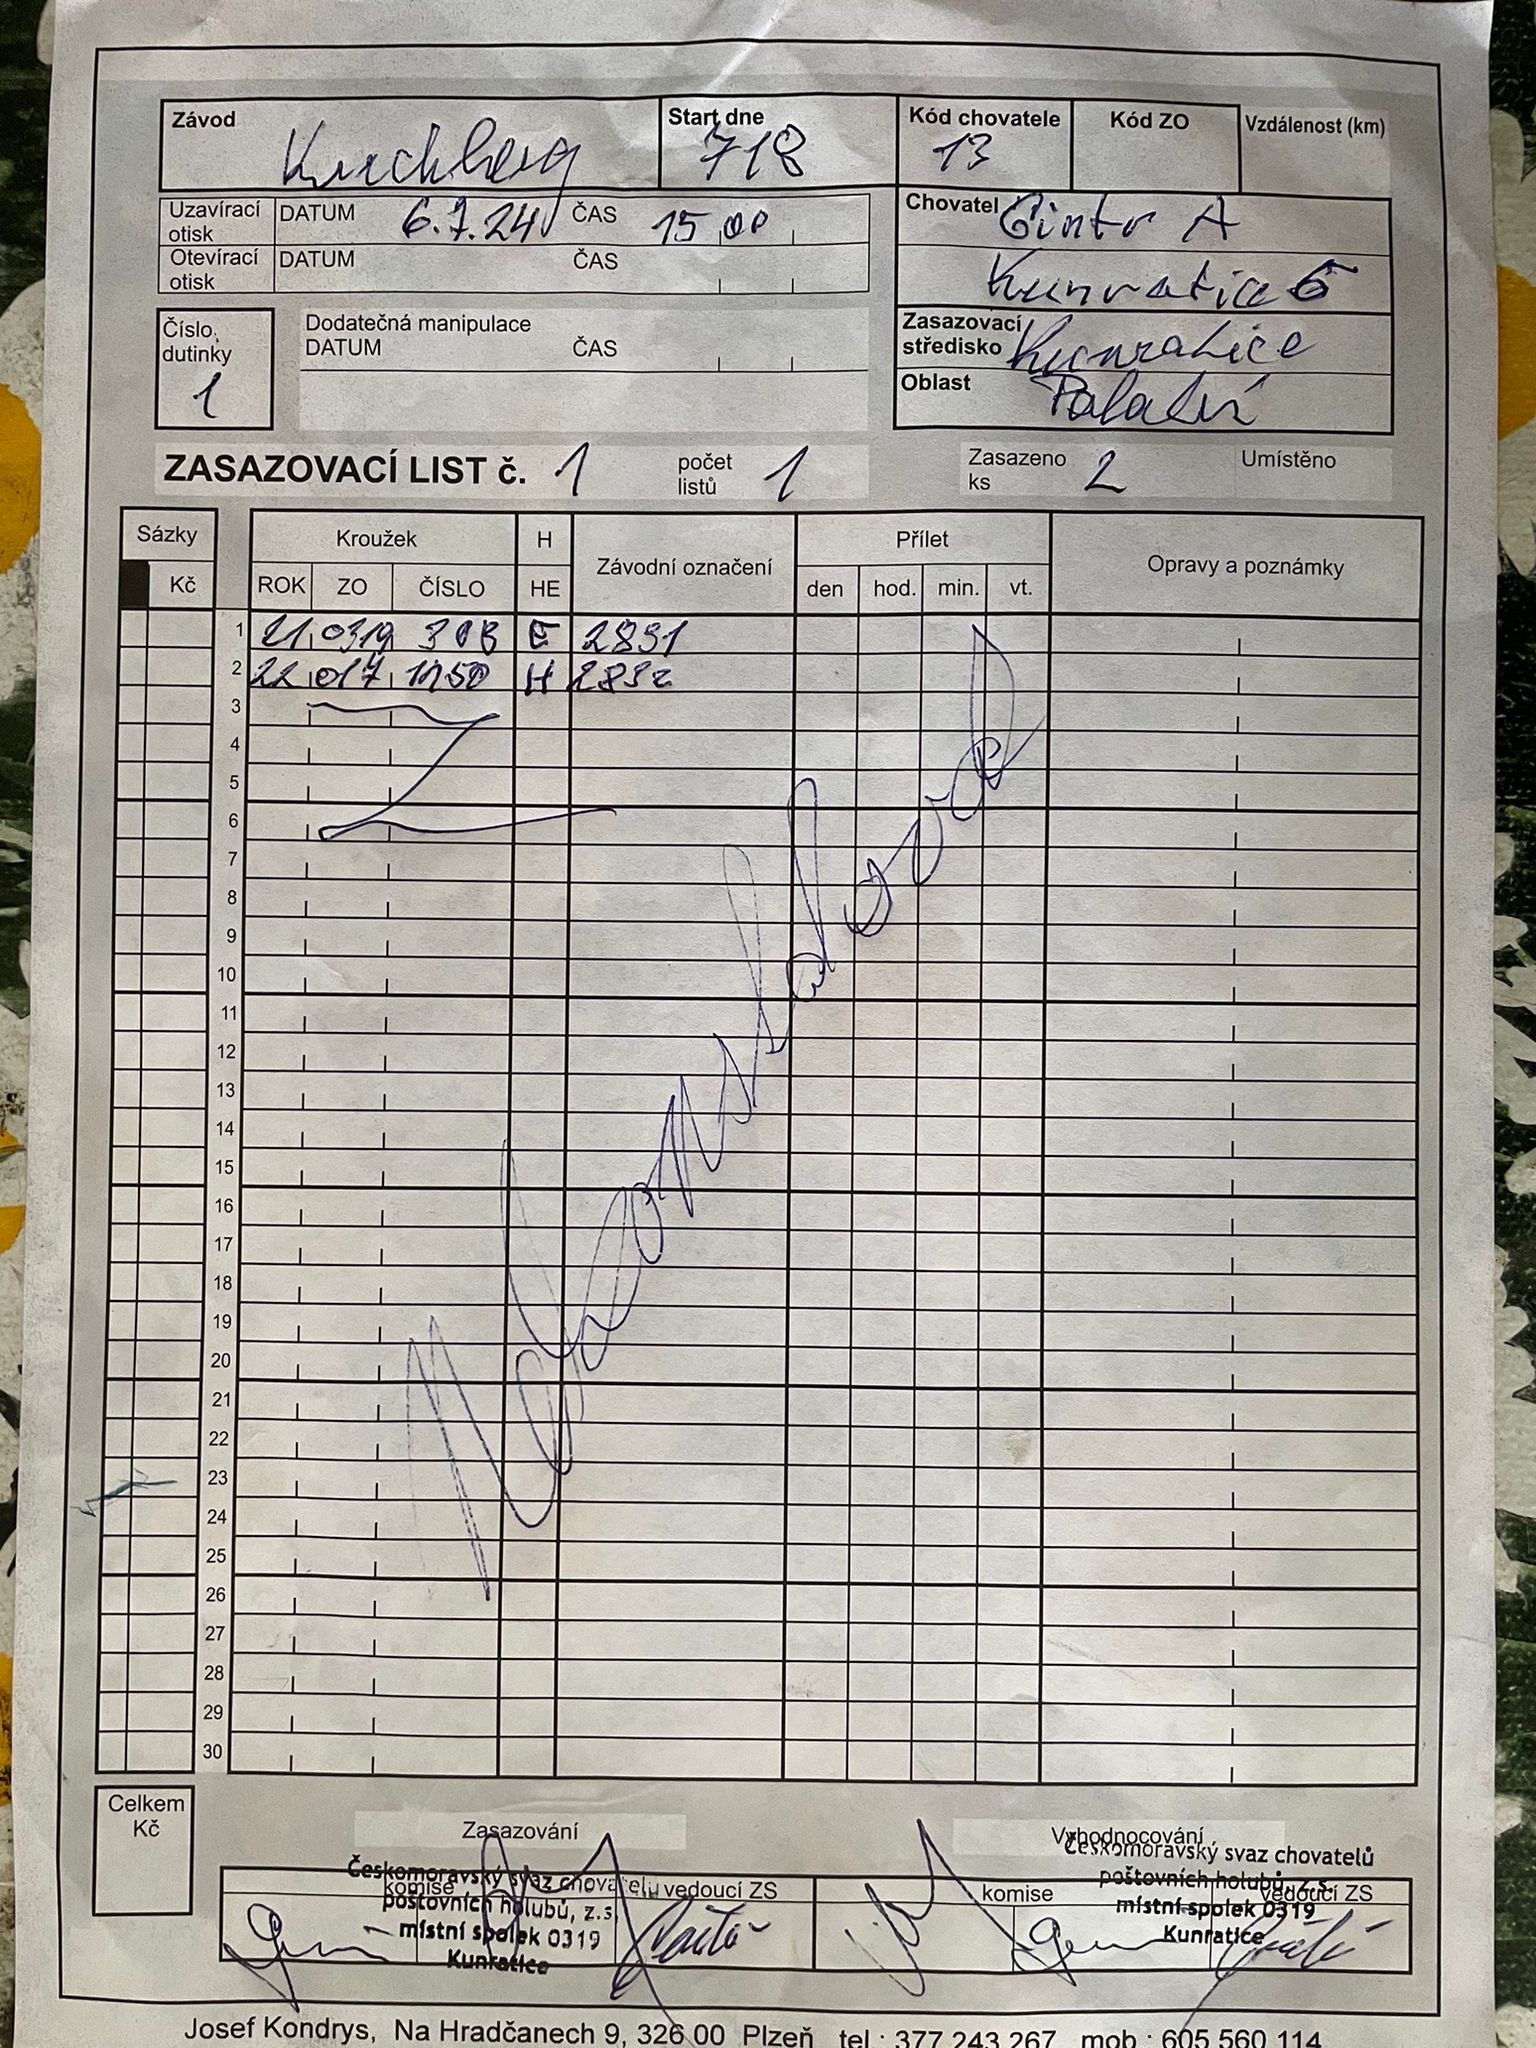 Závod Kirchberg Start dne 718 Kód chovatele 13 Kód ZO Vzdálenost (km)
Uzavírací otisk DATUM 6.7.24 ČAS 15 00
Otevírací otisk DATUM ČAS
Chovatel Cintr A
Kunratice 6
Číslo dutinky 1
Dodatečná manipulace
DATUM ČAS
Zasazovací středisko Kunratice
Oblast
ZASAZOVACÍ LIST č. 1 počet listů 1 Zasazeno ks 2 Umístěno
Sázky Kroužek H Závodní označení Přílet Opravy a poznámky
Kč ROK ZO ČÍSLO HE den hod. min. vt.
1 21 0319 308 E 2851
2 22 017 1150 H 2852
3
4
5
6
7
8
9
10
11
12
13
14
15
16
17
18
19
20
21
22
23
24
25
26
27
28
29
30
Nekonstatoval
Celkem Kč
Zasazování Vyhodnocování
komise vedoucí ZS komise vedoucí ZS
Českomoravský svaz chovatelů
poštovních holubů, z.s.
místní spolek 0319
Kunratice
Českomoravský svaz chovatelů
poštovních holubů, z.s.
místní spolek 0319
Kunratice
Josef Kondrys, Na Hradčanech 9, 326 00 Plzeň tel.: 377 243 267 mob.: 605 560 114